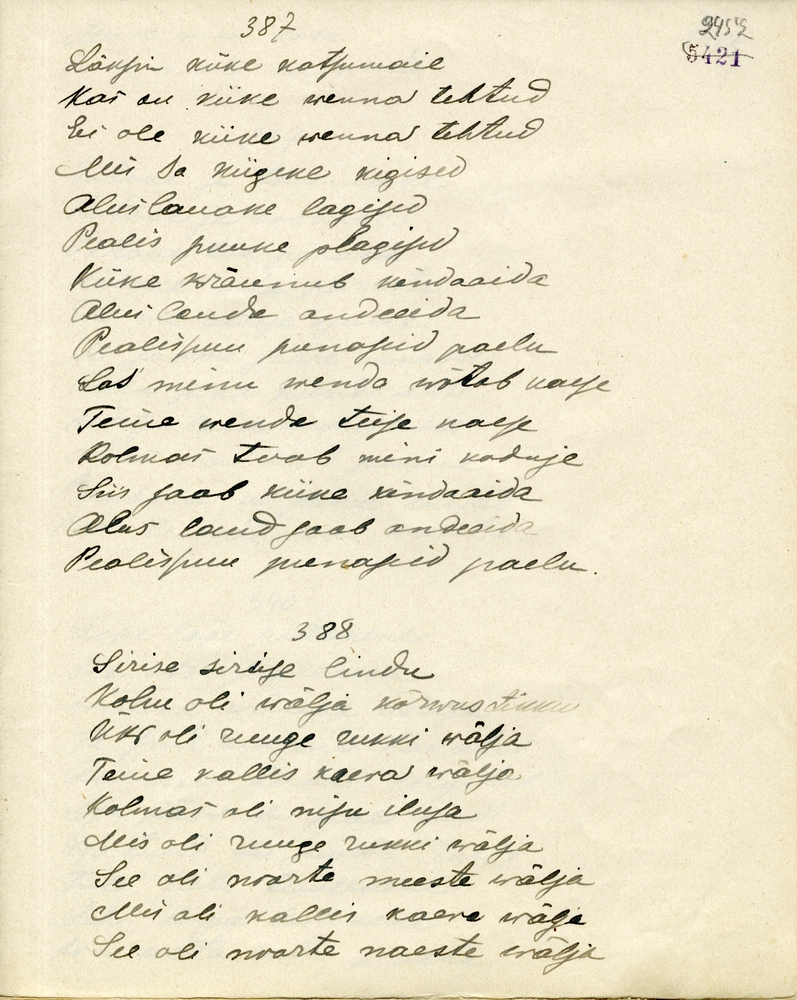 387
2452
5421
Läksin kiike katsumaie
Kas on kiike wenna tehtud
Ei ole kiike wenna tehtud
Mis sa kiigeke kigised
Aluslauake lagised
Pealis puuke plagised
Kiike kräunub kindaaida
Alus lauda andeeida
Pealispuu punasid paelu
Las minu wenda wõtab naese
Teine wenda teise naese
Kolmas toob mini koduje
Siis saab kiike kindaaida
Alus laud saab andeeida
Pealispuu punasid paelu.
388
Sirise sirise lindu
Kolm oli wälja kõrwustikku
Üks oli ruuge rukki wälja
Teine kallis kaera wälja
Kolmas oli nisu ilusa
Mis oli ruuge rukki wälja
See oli noorte meeste wälja
Mis oli kallis kaera wälja
See oli noorte naeste wälja